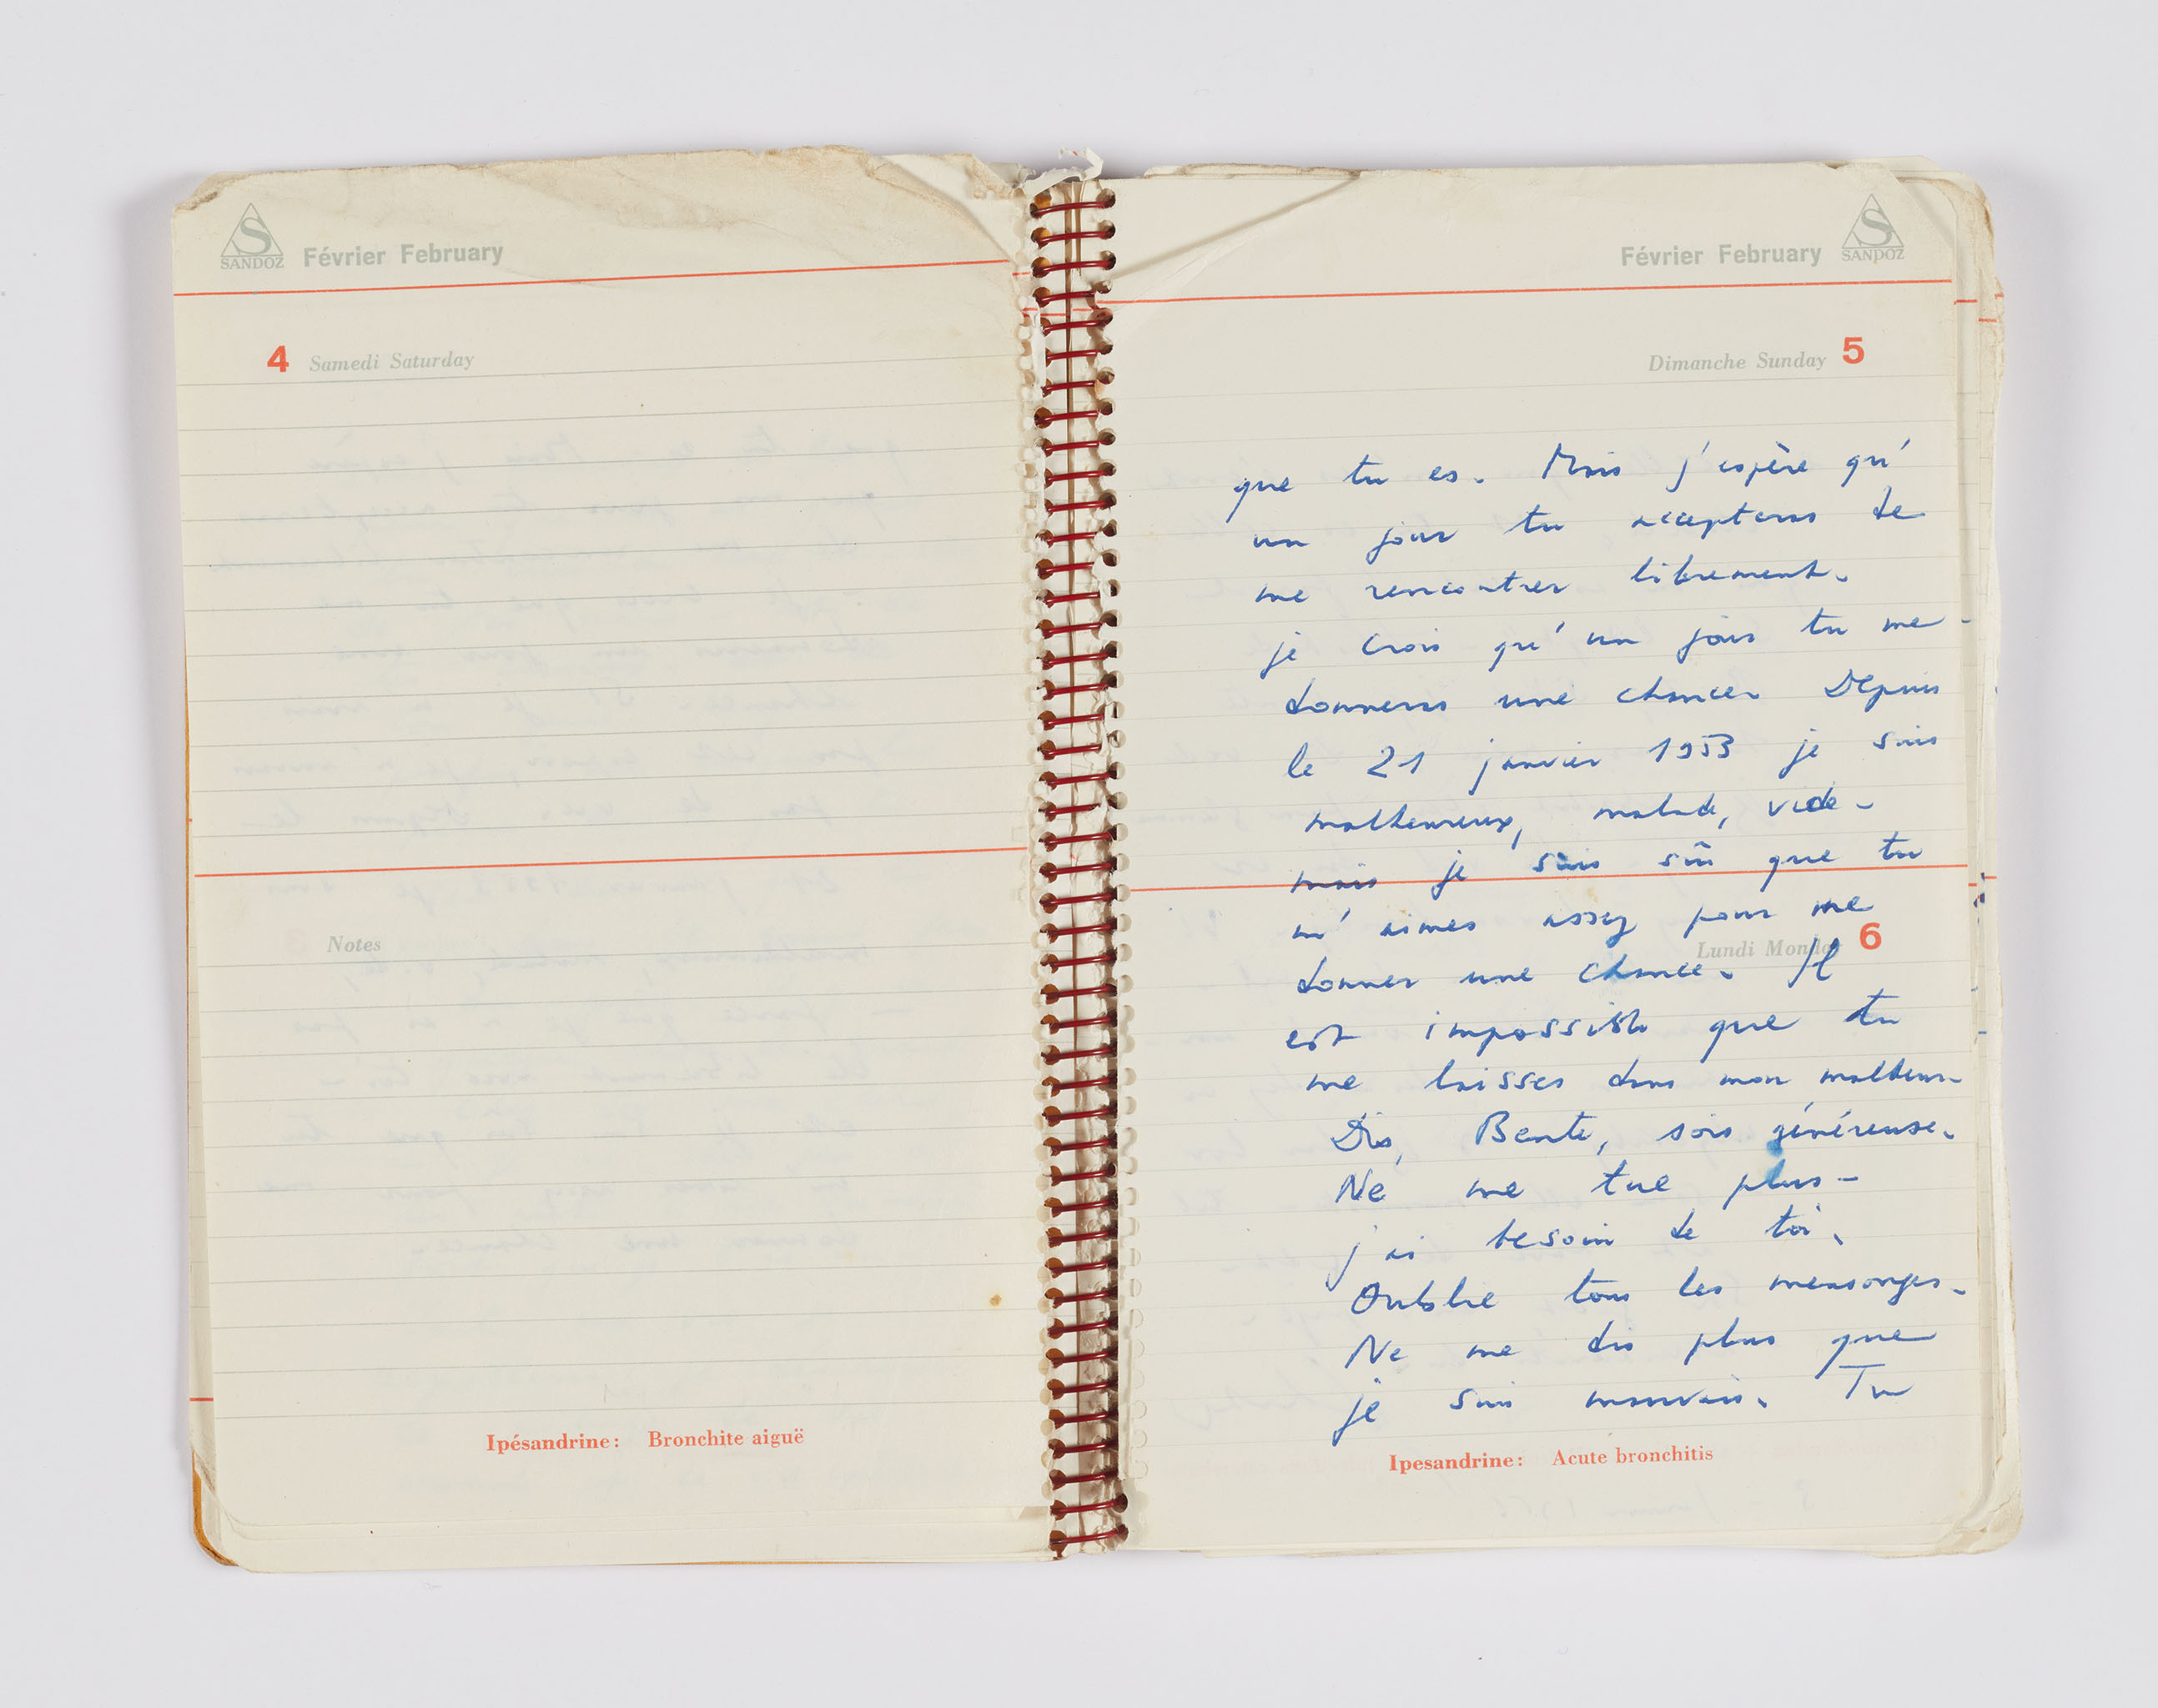 S
SANDOZ
Février February
4 Samedi Saturday
Notes
Ipésandrine: Bronchite aiguë
Février February
S
SANDOZ
Dimanche Sunday 5
que tu es. Mais j'espère qu'
un jour tu accepteras de
me rencontrer librement.
je crois qu'un jour tu me
donneras une chance. Depuis
le 21 janvier 1953 je suis
malheureux, malade, vide -
mais je suis sûr que tu
m'aimes assez pour me
Lundi Monday 6
donner une chance. Il
est impossible que tu
me laisses dans mon malheur.
Dis, Bente, sois généreuse.
Ne me tue plus -
j'ai besoin de toi.
Oublie tous les mensonges.
Ne me dis plus que
je suis mauvais. Tu
Ipesandrine: Acute bronchitis